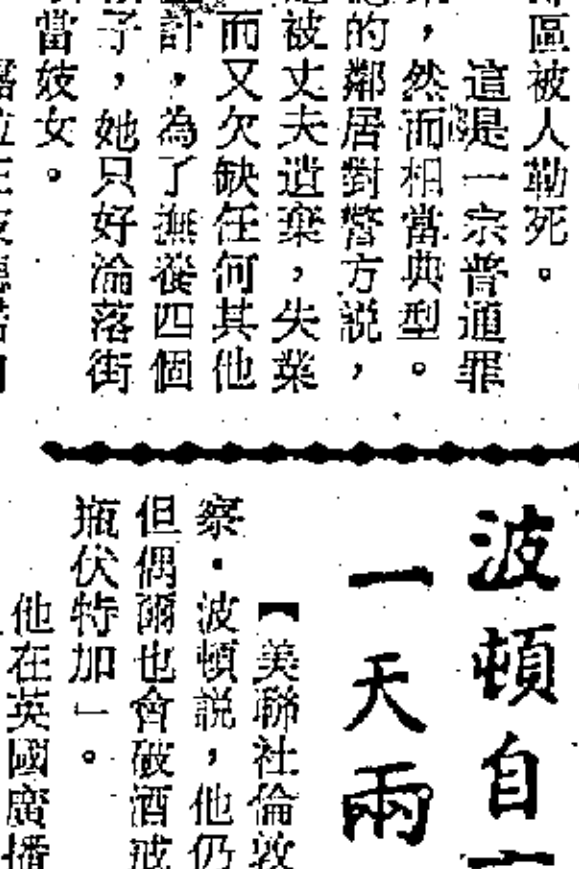 區被人勒死。
這是一宗普通罪
，然而相當典型。
的鄰居對警方説，
被丈夫遺棄，失業
而又欠缺任何其他
計，為了撫養四個
子，她只好淪落街
當妓女。
波頓自
一天兩
【美聯社倫敦
察·波頓説，他仍
但偶爾也會破酒戒
瓶伏特加」。
他在英國廣播